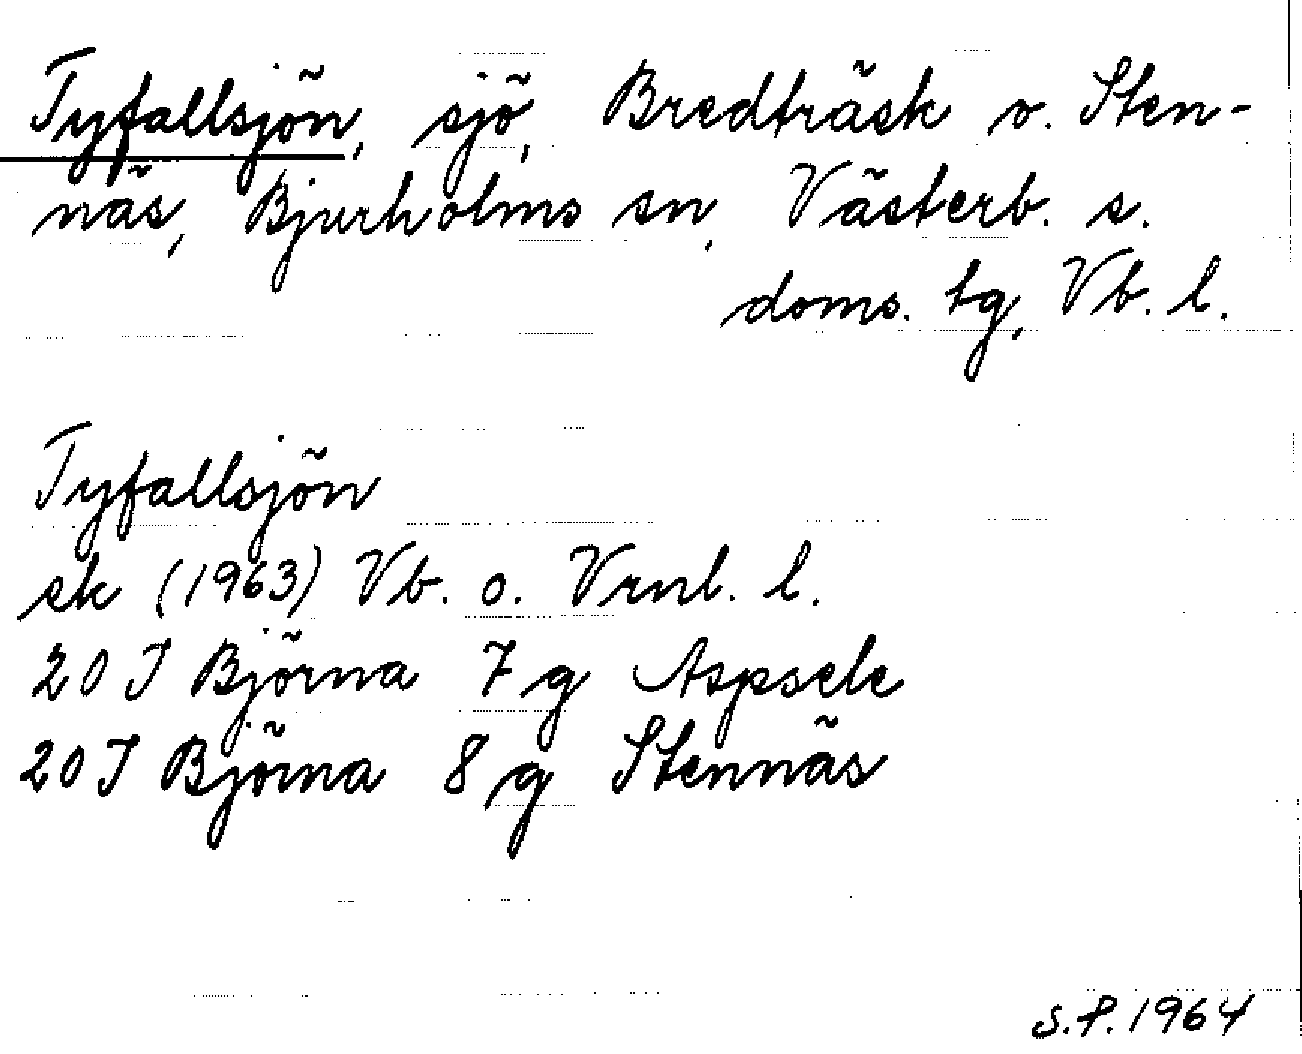 Tyfallsjön, sjö, Bredträsk o. Sten-
näs, Bjurholms sn, Västerb. s.
doms. tg, Vb. l.
Tyfallsjön
ek (1963) Vb. o. Vrnl. l.
20 J Björna 7 g Aspsele
20 J Björna 8 g Stennäs
S.P. 1964